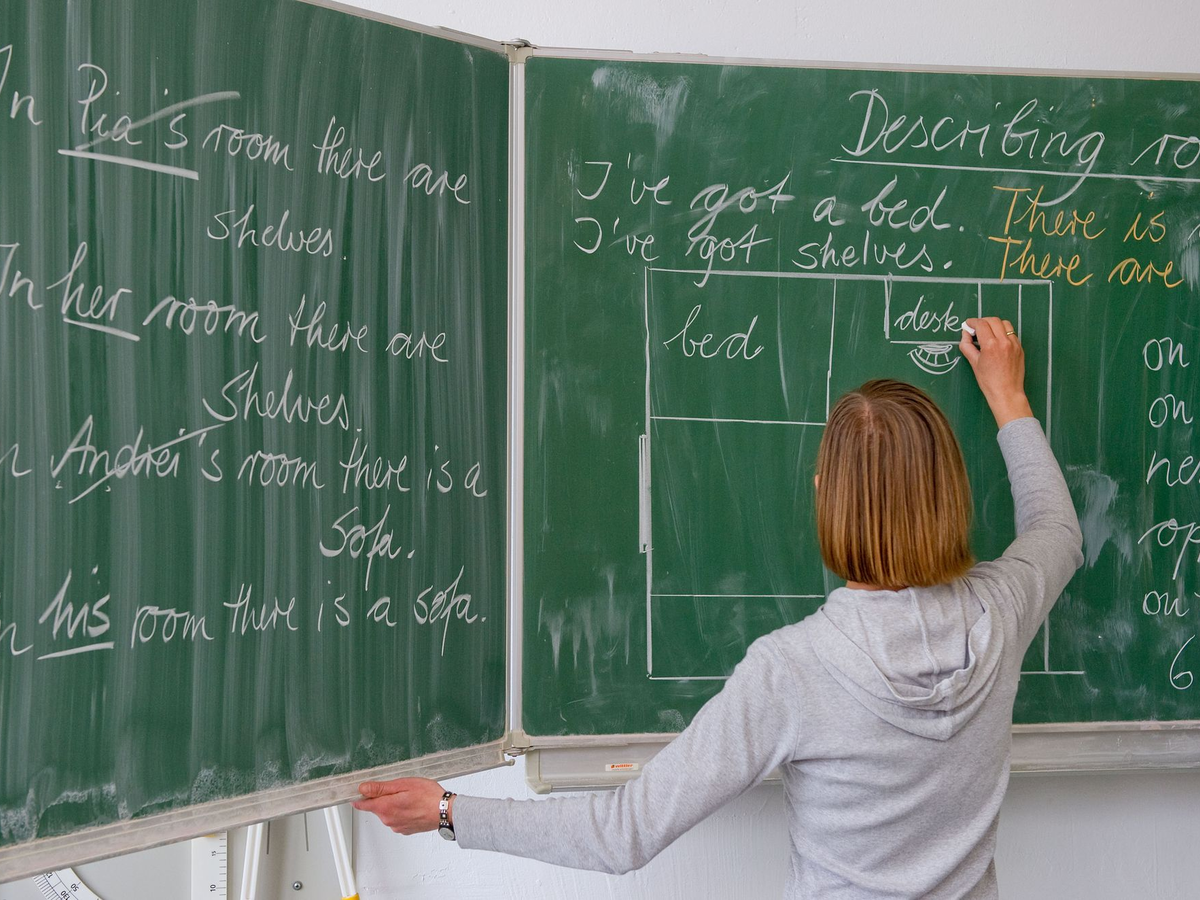 In Pia's room there are
shelves.
In her room there are
shelves.
Andrei's room there is a
sofa.
his room there is a sofa.
Describing
I've got a bed. There is
I've got shelves. There are
bed
desk
on
on
on
6